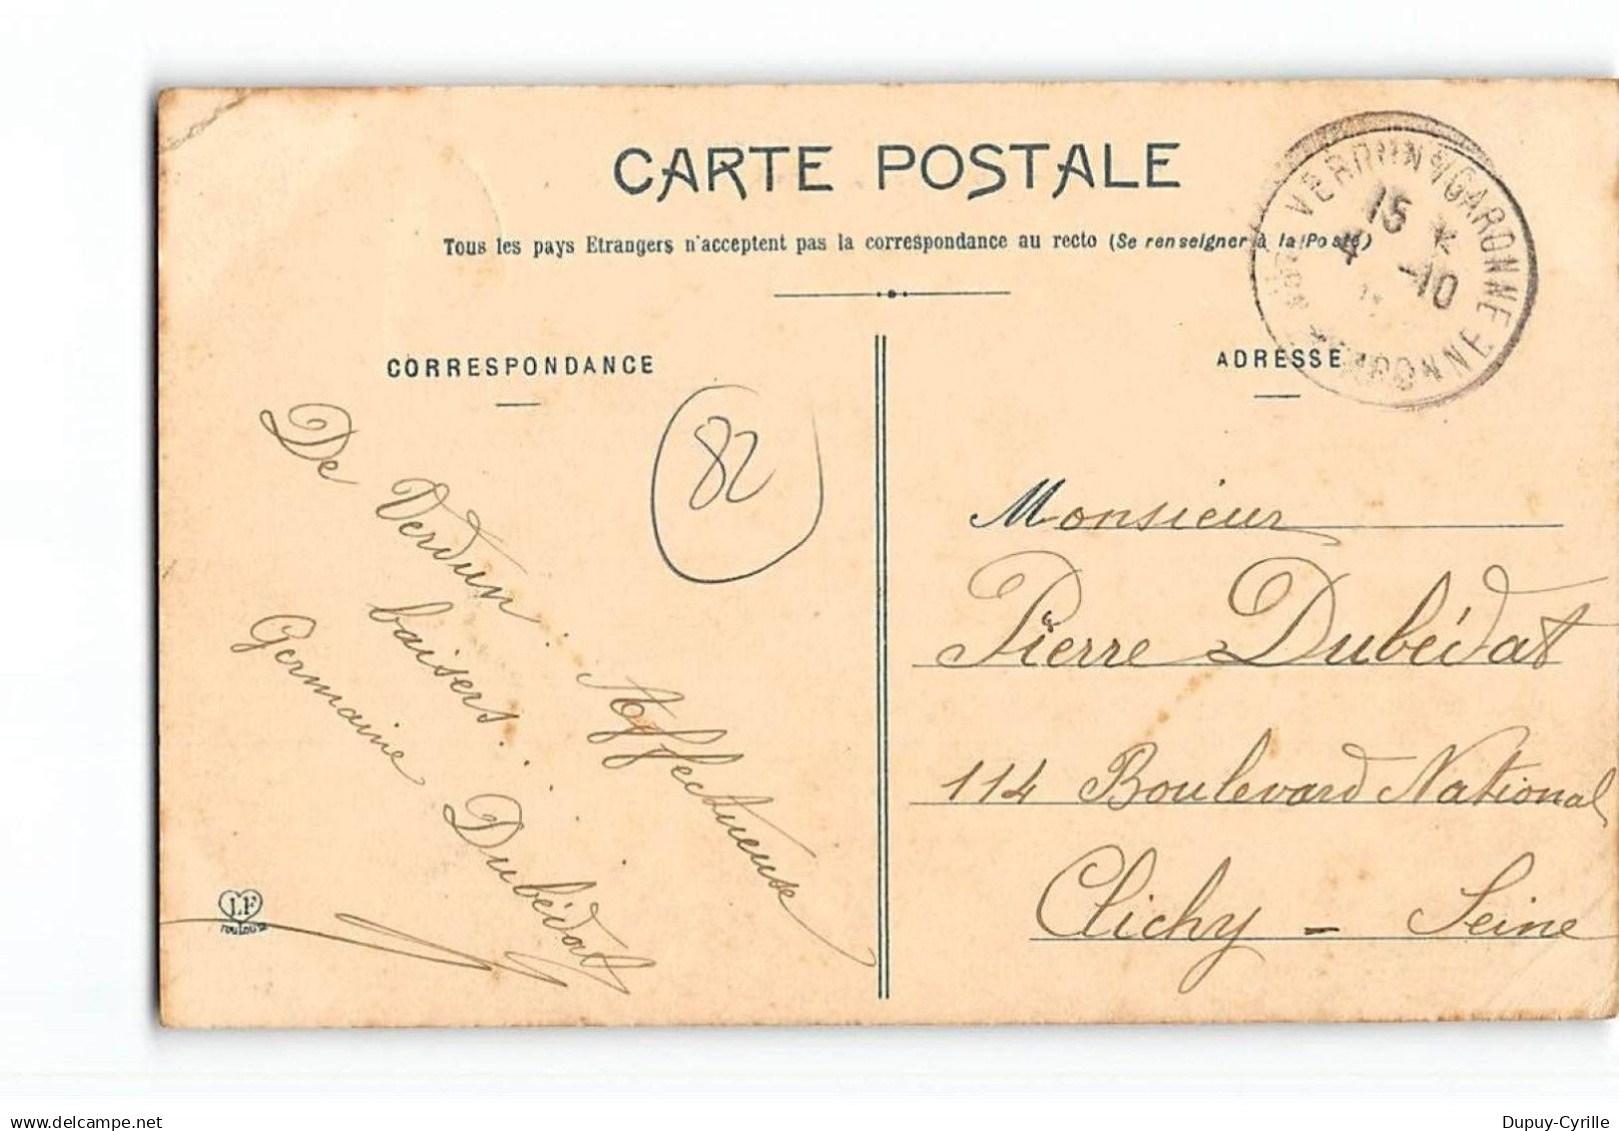 CARTE POSTALE
Tous les pays Etrangers n'acceptent pas la correspondance au recto (Se renseigner à la Poste)
VERDUN S/GARONNE
15 *
4 -10
GARONNE
CORRESPONDANCE
ADRESSE
82
De Verdun. Affectueuse
baisers...
Germaine Dubédat
LF
TOULOUSE
Monsieur
Pierre Dubédat
114 Boulevard National
Clichy - Seine
delcampe.net
Dupuy-Cyrille